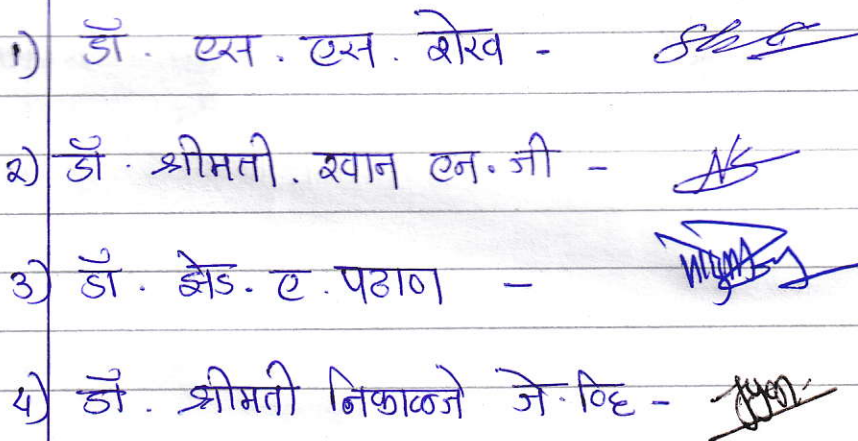 १) डॉ. एस. एस. शेख -
२) डॉ. श्रीमती. खान एन. जी -
३) डॉ. झेड. ए. पठाण -
४) डॉ. श्रीमती निकाळजे जे. व्हि -